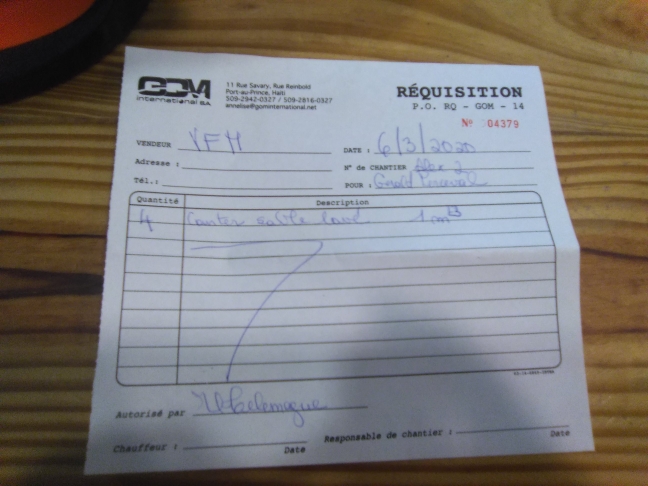 GOM
International S.A.
11 Rue Savary, Rue Reinbold
Port-au-Prince, Haiti
509-2942-0327 / 509-2816-0327
annelise@gominternational.net
RÉQUISITION
P.O. RQ - GOM - 14
Nº 04379
VENDEUR
DATE : 6/3/2020
Adresse :
Nº de CHANTIER
Tél.:
POUR : Gerald
Quantité Description
4 sable lavé 1 m3
Autorisé par
Chauffeur :
Date
Responsable de chantier :
Date